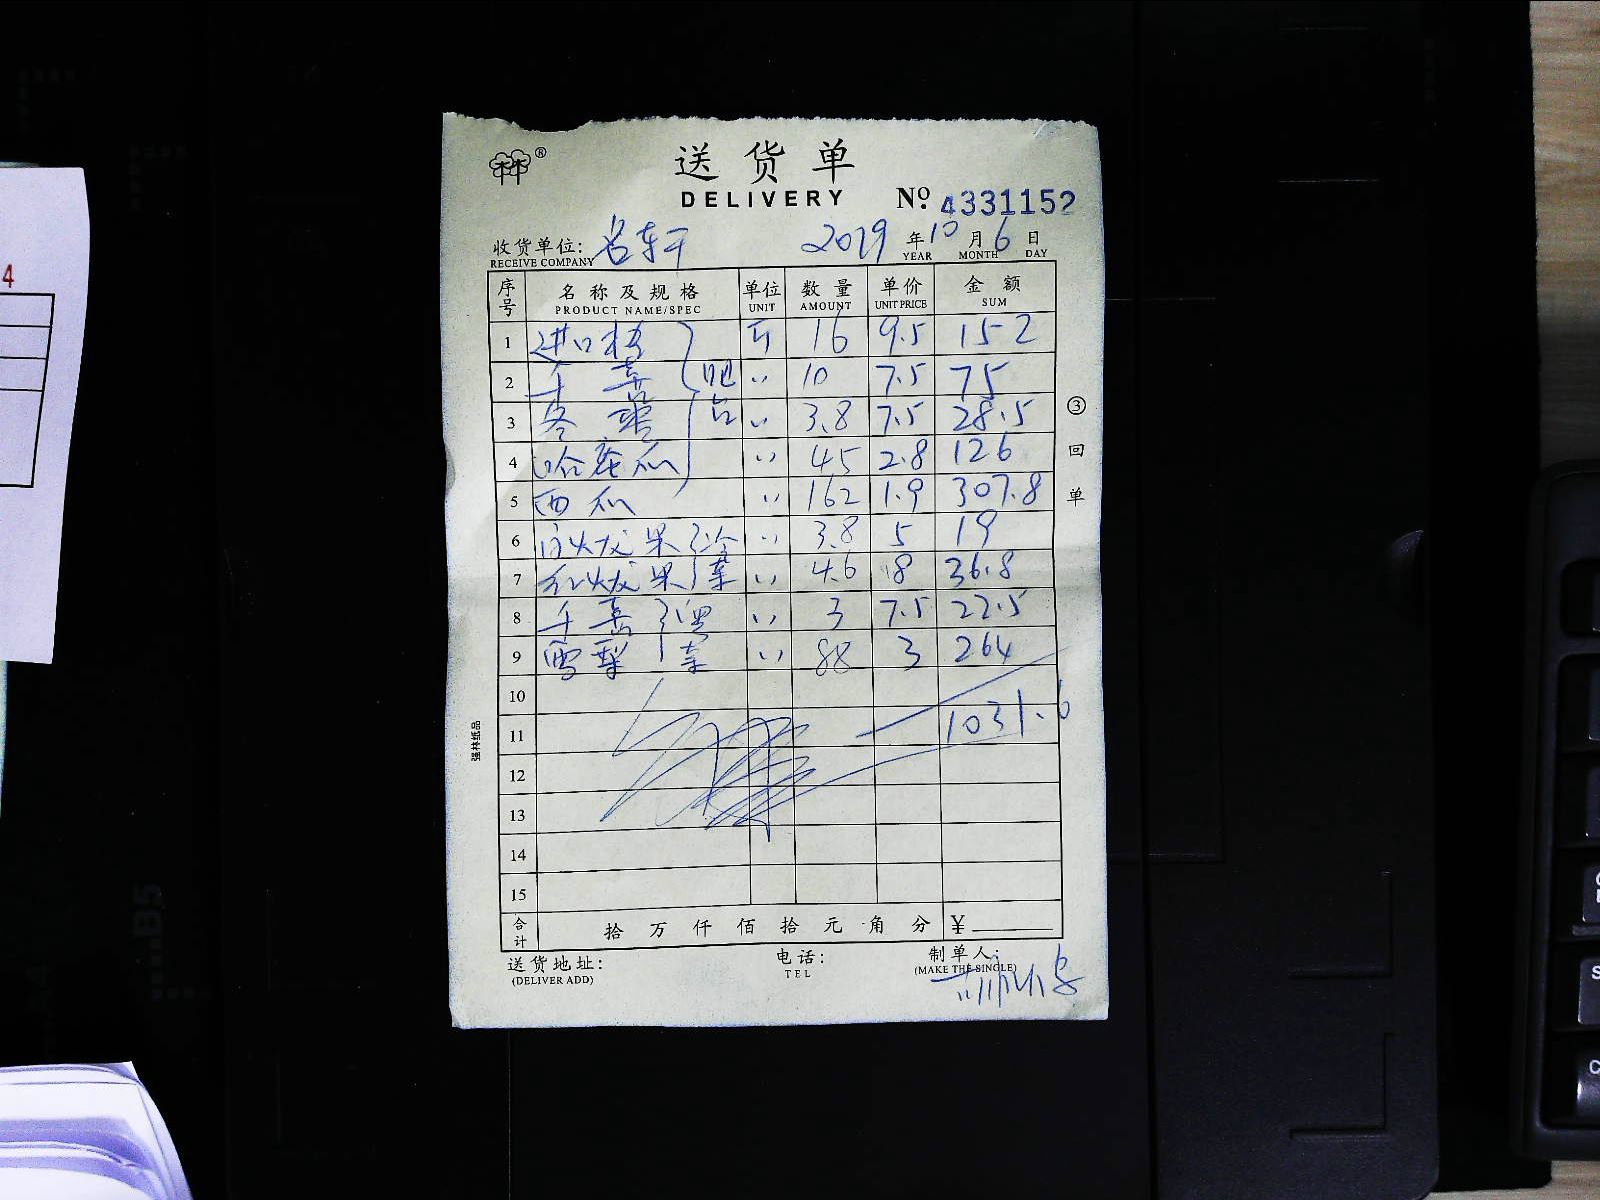 送货单
DELIVERY
No. 4331152
收货单位: 名轩
RECEIVE COMPANY
2019 年 10 月 6 日
YEAR MONTH DAY
序号 名称及规格 单位 数量 单价 金额
PRODUCT NAME/SPEC UNIT AMOUNT UNIT PRICE SUM
1 进口橙 斤 16 9.5 152
2 千禧 吧 〃 10 7.5 75
3 冬枣 台 〃 3.8 7.5 28.5
4 哈蜜瓜 〃 45 2.8 126
5 西瓜 〃 162 1.9 307.8
6 白火龙果 冷 〃 3.8 5 19
7 红火龙果 菜 〃 4.6 8 36.8
8 千禧 〃 3 7.5 22.5
9 雪梨 〃 88 3 264
10
11 1031.6
12
13
14
15
合计 拾 万 仟 佰 拾 元 角 分 ¥
送货地址:
(DELIVER ADD)
电话:
TEL
制单人:
(MAKE THE SINGLE)
③回单
强林纸品
4
B5